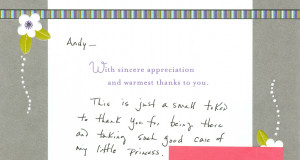 Andy —
With sincere appreciation
and warmest thanks to you.
This is just a small token
to thank you for being there
and taking such good care of
my little princess.